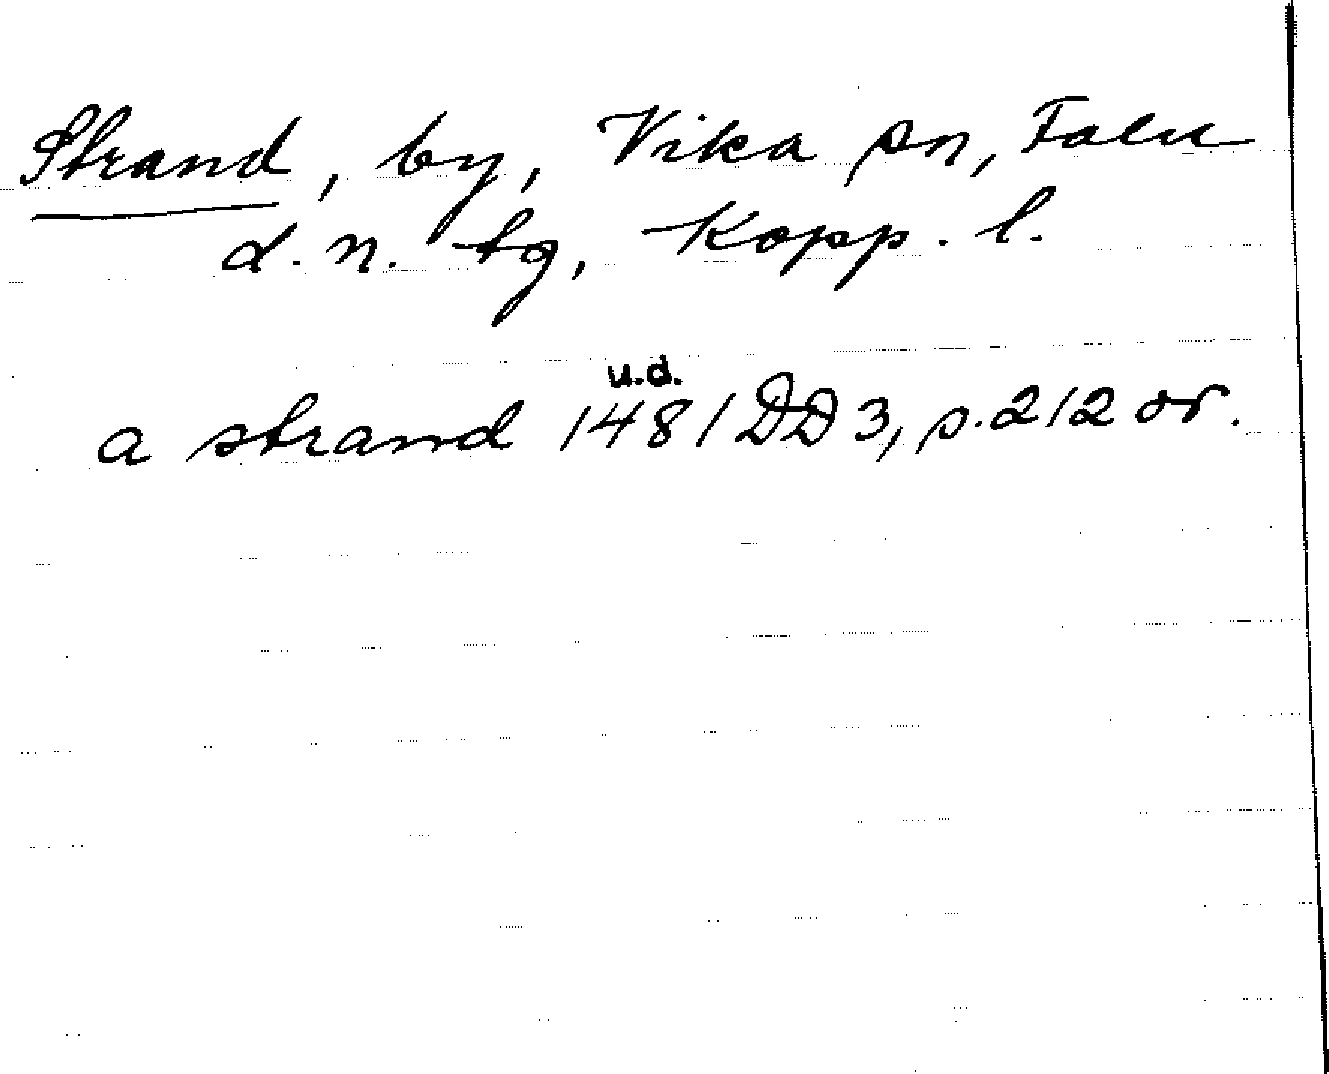 Strand, by, Vika sn, Falu
d. n. tg, Kopp. l.
u.d.
a strand 1481 DD 3, s. 212 or.